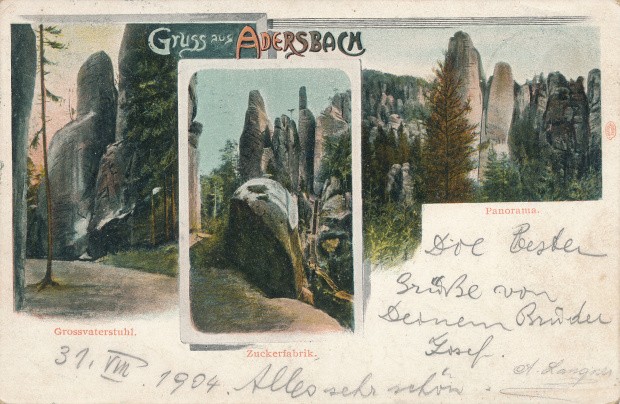 Gruss aus Adersbach
Panorama.
Grossvaterstuhl.
Zuckerfabrik.
Die Besten
Grüße von
Deinem Bruder
Josef.
A. Langner
31. VIII. 1904. Alles sehr schön.